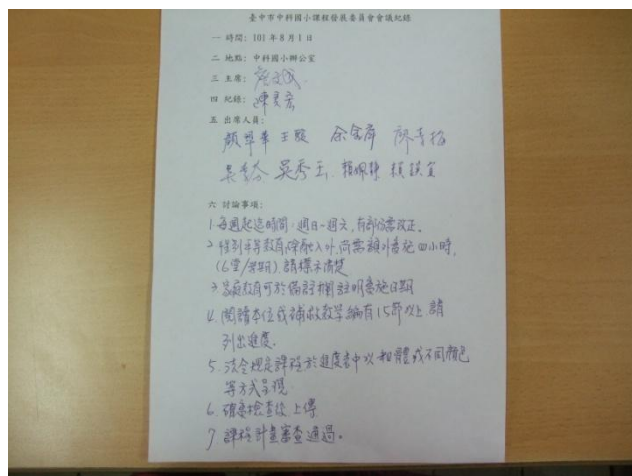 臺中市中科國小課程發展委員會會議紀錄
一 時間：101年8月1日
二 地點：中科國小辦公室
三 主席：
四 紀錄：陳
五 出席人員：
顏翠華 王 余 廖青梅
吳秀玉 賴佩靜 賴
六 討論事項：
1. 每週起迄時間：週日~週六，有部份需改正。
2. 性別平等教育除融入外，尚需額外實施四小時，
(6堂/學期) 請標示清楚
3. 家庭教育可於備註欄註明實施日期
4. 閱讀本位或補救教學編有15節以上，請
列出進度。
5. 法令規定課程於進度表中以粗體或不同顏色
等方式呈現
6. 確實檢查後上傳
7. 課程計畫審查通過。